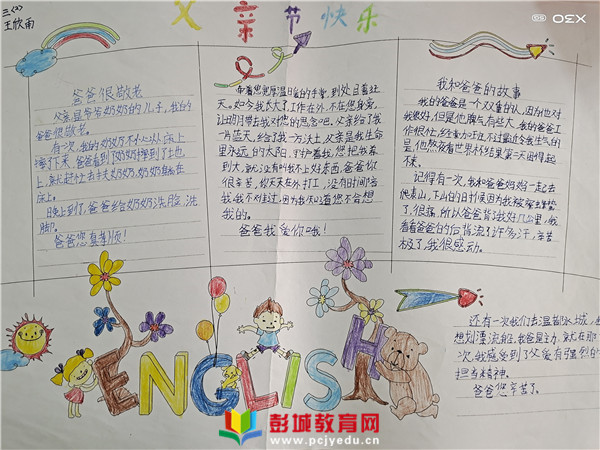 三(2)
王欣雨
父亲节快乐
X30
爸爸很敬老
父亲是爷爷奶奶的儿子,我的
爸爸很敬老。
有一次,我的奶奶不小心从床上
摔了下来,爸爸看到了奶奶摔到了地
上,就赶忙去扶奶奶,奶奶躺在
床上。
晚上到了,爸爸给奶奶洗脸,洗
脚。
爸爸您真孝顺!
天。如今我长大了,工作在外,不在您身旁,
让明月带去我对您的思念吧。父亲给了我
一片蓝天,给了我一方沃土,父亲是我生命
里永远的太阳
到大,就没有听我不上好东西,爸爸你
很辛苦,你天天在外打工,没有时间陪
我,我不难过,因为我知道您不会想
我的。
爸爸我爱你哦!
我和爸爸的故事
我的爸爸是一个双重的人,因为他对
我很好,但是他脾气有些大,我的爸爸工
作很忙,经常加班,不过最近令我生气的
是,他熬夜看世界杯结果第二天困得起
不来。
记得有一次,我和爸爸妈妈一起去
爬泰山,下山的时候因为我
了,很痛,所以爸爸背我好几公里,我
看着爸爸的后背流了许多汗,辛苦
极了,我很感动。
还有一次我们去温都水城,
想划漂流船,我爸是主力,就在那
次,我感受到了父爱有强烈的
担当精神。
爸爸您辛苦了。
ENGLISH
彭城教育网
www.pcjyedu.cn